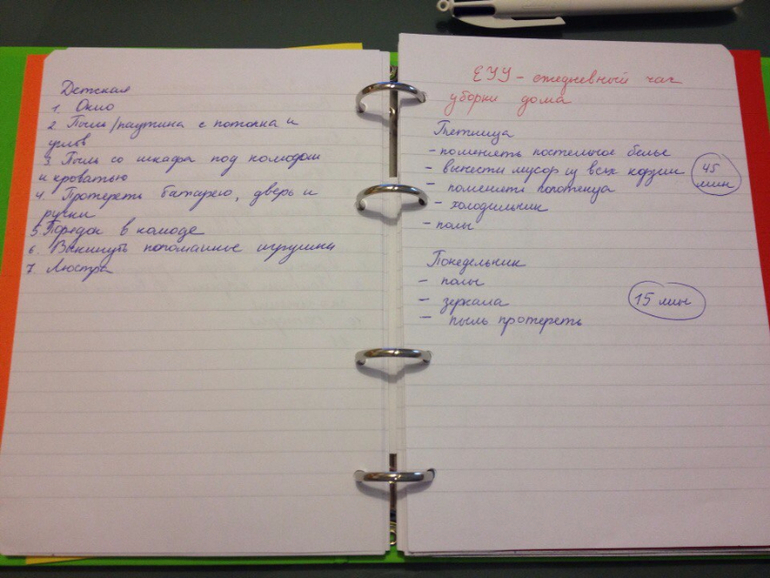 Детская
1. Окно
2. Пыль/паутина с потолка и
углов
3. Пыль со шкафа, под комодом
и кроватью
4. Протереть батарею, дверь и
ручки
5. Порядок в комоде
6. Выкинуть поломанные игрушки
7. Люстра
ЕЧУ - ежедневный час
уборки дома
Пятница
- поменять постельное белье
- вынести мусор из всех корзин
- поменять полотенца
- холодильник
- полы
45
мин
Понедельник
- полы
- зеркала
- пыль протереть
15 мин